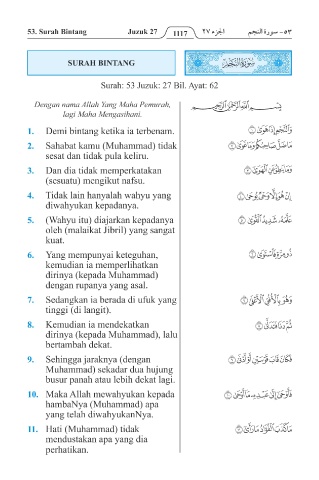 53. Surah Bintang Juzuk 27 1117 الجزء ٢٧ ٥٣ – سورة النجم
SURAH BINTANG سورة النجم
Surah: 53 Juzuk: 27 Bil. Ayat: 62
Dengan nama Allah Yang Maha Pemurah,
lagi Maha Mengasihani.
بِسْمِ اللَّهِ الرَّحْمَٰنِ الرَّحِيمِ
1. Demi bintang ketika ia terbenam.
وَالنَّجْمِ إِذَا هَوَىٰ ١
2. Sahabat kamu (Muhammad) tidak
sesat dan tidak pula keliru.
مَا ضَلَّ صَاحِبُكُمْ وَمَا غَوَىٰ ٢
3. Dan dia tidak memperkatakan
(sesuatu) mengikut nafsu.
وَمَا يَنطِقُ عَنِ الْهَوَىٰ ٣
4. Tidak lain hanyalah wahyu yang
diwahyukan kepadanya.
إِنْ هُوَ إِلَّا وَحْيٌ يُوحَىٰ ٤
5. (Wahyu itu) diajarkan kepadanya
oleh (malaikat Jibril) yang sangat
kuat.
عَلَّمَهُ شَدِيدُ الْقُوَىٰ ٥
6. Yang mempunyai keteguhan,
kemudian ia memperlihatkan
dirinya (kepada Muhammad)
dengan rupanya yang asal.
ذُو مِرَّةٍ فَاسْتَوَىٰ ٦
7. Sedangkan ia berada di ufuk yang
tinggi (di langit).
وَهُوَ بِالْأُفُقِ الْأَعْلَىٰ ٧
8. Kemudian ia mendekatkan
dirinya (kepada Muhammad), lalu
bertambah dekat.
ثُمَّ دَنَا فَتَدَلَّىٰ ٨
9. Sehingga jaraknya (dengan
Muhammad) sekadar dua hujung
busur panah atau lebih dekat lagi.
فَكَانَ قَابَ قَوْسَيْنِ أَوْ أَدْنَىٰ ٩
10. Maka Allah mewahyukan kepada
hambaNya (Muhammad) apa
yang telah diwahyukanNya.
فَأَوْحَىٰ إِلَىٰ عَبْدِهِ مَا أَوْحَىٰ ١٠
11. Hati (Muhammad) tidak
mendustakan apa yang dia
perhatikan.
مَا كَذَبَ الْفُؤَادُ مَا رَأَىٰ ١١